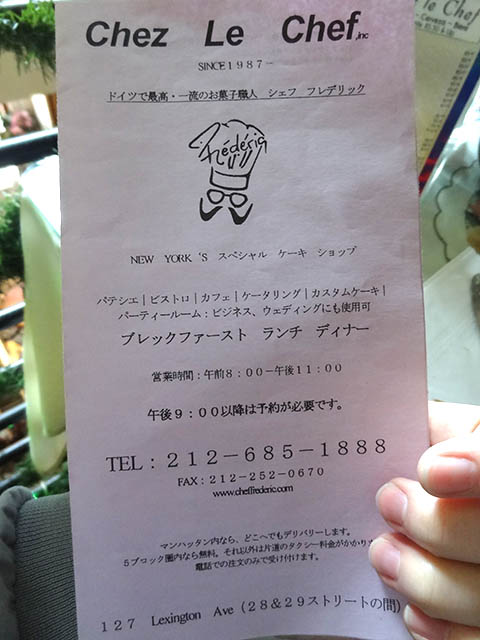 Chez Le Chef,inc
SINCE1987-
ドイツで最高・一流のお菓子職人 シェフ フレデリック
Frédéric
NEW YORK 'S スペシャル ケーキ ショップ
パテシエ|ビストロ|カフェ|ケータリング|カスタムケーキ|
パーティールーム:ビジネス、ウェディングにも使用可
ブレックファースト ランチ ディナー
営業時間:午前8:00-午後11:00
午後9:00以降は予約が必要です。
TEL:212-685-1888
FAX:212-252-0670
www.cheffrederic.com
マンハッタン内なら、どこへでもデリバリーします。
5ブロック圏内なら無料。それ以外は片道のタクシー料金がかかりま
電話での注文のみで受け付けます。
127 Lexington Ave(28&29ストリートの間)
le Chef